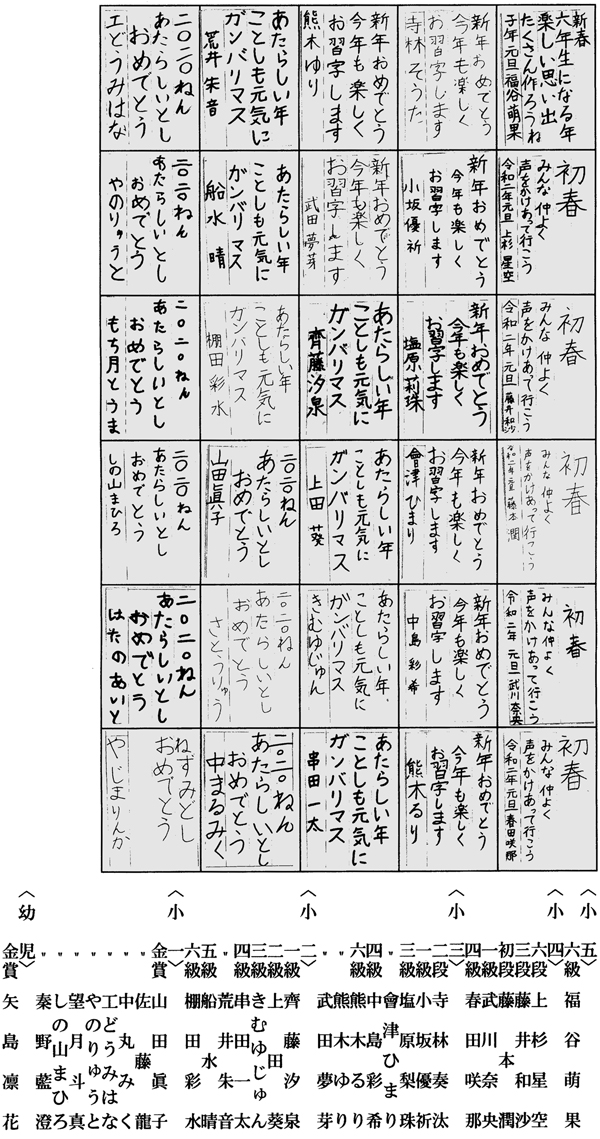 新春
六年生になる年
楽しい思い出
たくさん作ろうね
子年 元旦 福谷萌果
初春
みんな仲よく
声をかけあって行こう
令和二年元旦 上杉星空
初春
みんな仲よく
声をかけあって行こう
令和二年 元旦 藤井和沙
初春
みんな仲よく
声をかけあって行こう
令和二年元旦 藤本潤
初春
みんな仲よく
声をかけあって行こう
令和二年 元旦 武川奈央
初春
みんな仲よく
声をかけあって行こう
令和二年 元旦 春田咲那
新年おめでとう
今年も楽しく
お習字します
寺林そうた
新年おめでとう
今年も楽しく
お習字します
小坂優祈
新年おめでとう
今年も楽しく
お習字します
塩原莉珠
新年おめでとう
今年も楽しく
お習字します
會津ひまり
新年おめでとう
今年も楽しく
お習字します
中島彩希
新年おめでとう
今年も楽しく
お習字します
熊木るり
新年おめでとう
今年も楽しく
お習字します
熊木ゆり
新年おめでとう
今年も楽しく
お習字します
武田夢芽
あたらしい年
ことしも元気に
ガンバリマス
齊藤汐泉
あたらしい年
ことしも元気に
ガンバリマス
上田葵
あたらしい年
ことしも元気に
ガンバリマス
きむゆじゅん
あたらしい年
ことしも元気に
ガンバリマス
串田一太
あたらしい年
ことしも元気に
ガンバリマス
荒井朱音
あたらしい年
ことしも元気に
ガンバリマス
船水晴
あたらしい年
ことしも元気に
ガンバリマス
棚田彩水
二〇二〇ねん
あたらしいとし
おめでとう
山田眞子
二〇二〇ねん
あたらしいとし
おめでとう
さとうりゅう
二〇二〇ねん
あたらしいとし
おめでとう
中まるみく
二〇二〇ねん
あたらしいとし
おめでとう
工どうみはな
二〇二〇ねん
あたらしいとし
おめでとう
やのりゅうと
二〇二〇ねん
あたらしいとし
おめでとう
もち月とうま
二〇二〇ねん
あたらしいとし
おめでとう
しの山まひろ
二〇二〇ねん
あたらしいとし
おめでとう
はたのあいと
ねずみどし
おめでとう
やじまりんか
〈小五〉
六級 福谷萌果
〈小四〉
六段 上杉星空
三段 藤井和沙
初段 藤本潤
一級 武川奈央
四級 春田咲那
〈小三〉
二段 寺林奏汰
一級 小坂優祈
三級 塩原梨珠
〃 會津ひまり
四級 中島彩希
六級 熊木るり
〃 熊木ゆり
〃 武田夢芽
〈小二〉
一級 齊藤汐泉
二級 上田葵
三級 きむゆじゅん
四級 串田一太
〃 荒井朱音
五級 船水晴
六級 棚田彩水
〈小一〉
金賞 山田眞子
〃 佐藤龍
〃 中丸みく
〃 工どうみはな
〃 やのりゅうと
〃 望月斗真
〃 しの山まひろ
〃 秦野藍澄
〈幼児〉
金賞 矢島凛花